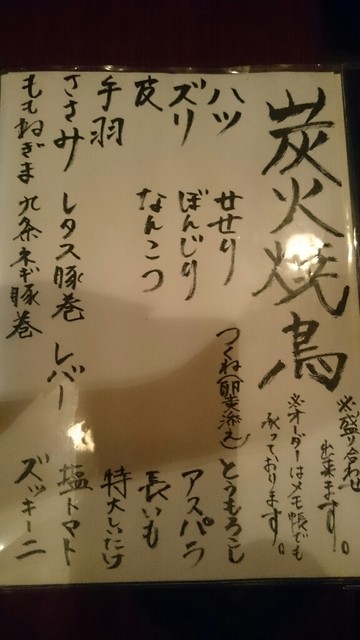 炭火焼鳥
※盛り合わせ
出来ます。
※オーダーはメモ帳でも
承っております。
ハツ
せせり
つくね(卵黄添え)
とうもろこし
ズリ
ぼんじり
アスパラ
皮
なんこつ
長いも
手羽
特大しいたけ
ささみ
レタス豚巻
レバー
塩トマト
ももねぎま
九条ネギ豚巻
ズッキーニ